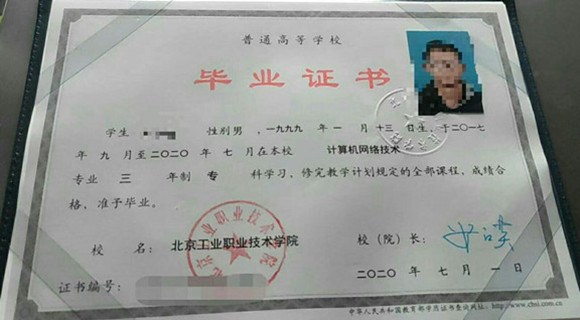 普通高等学校
毕业证书
学生 性别男，一九九九 年 一 月 十三 日生，于二〇一七
年 九 月至二〇二〇 年 七 月在本校 计算机网络技术
专业 三 年制 专 科学习，修完教学计划规定的全部课程，成绩合
格，准予毕业。
校 名：北京工业职业技术学院
校（院）长：
证书编号：
二〇二〇 年 七 月 一 日
中华人民共和国教育部学历证书查询网址：http://www.chsi.com.cn
北京工业职业技术学院